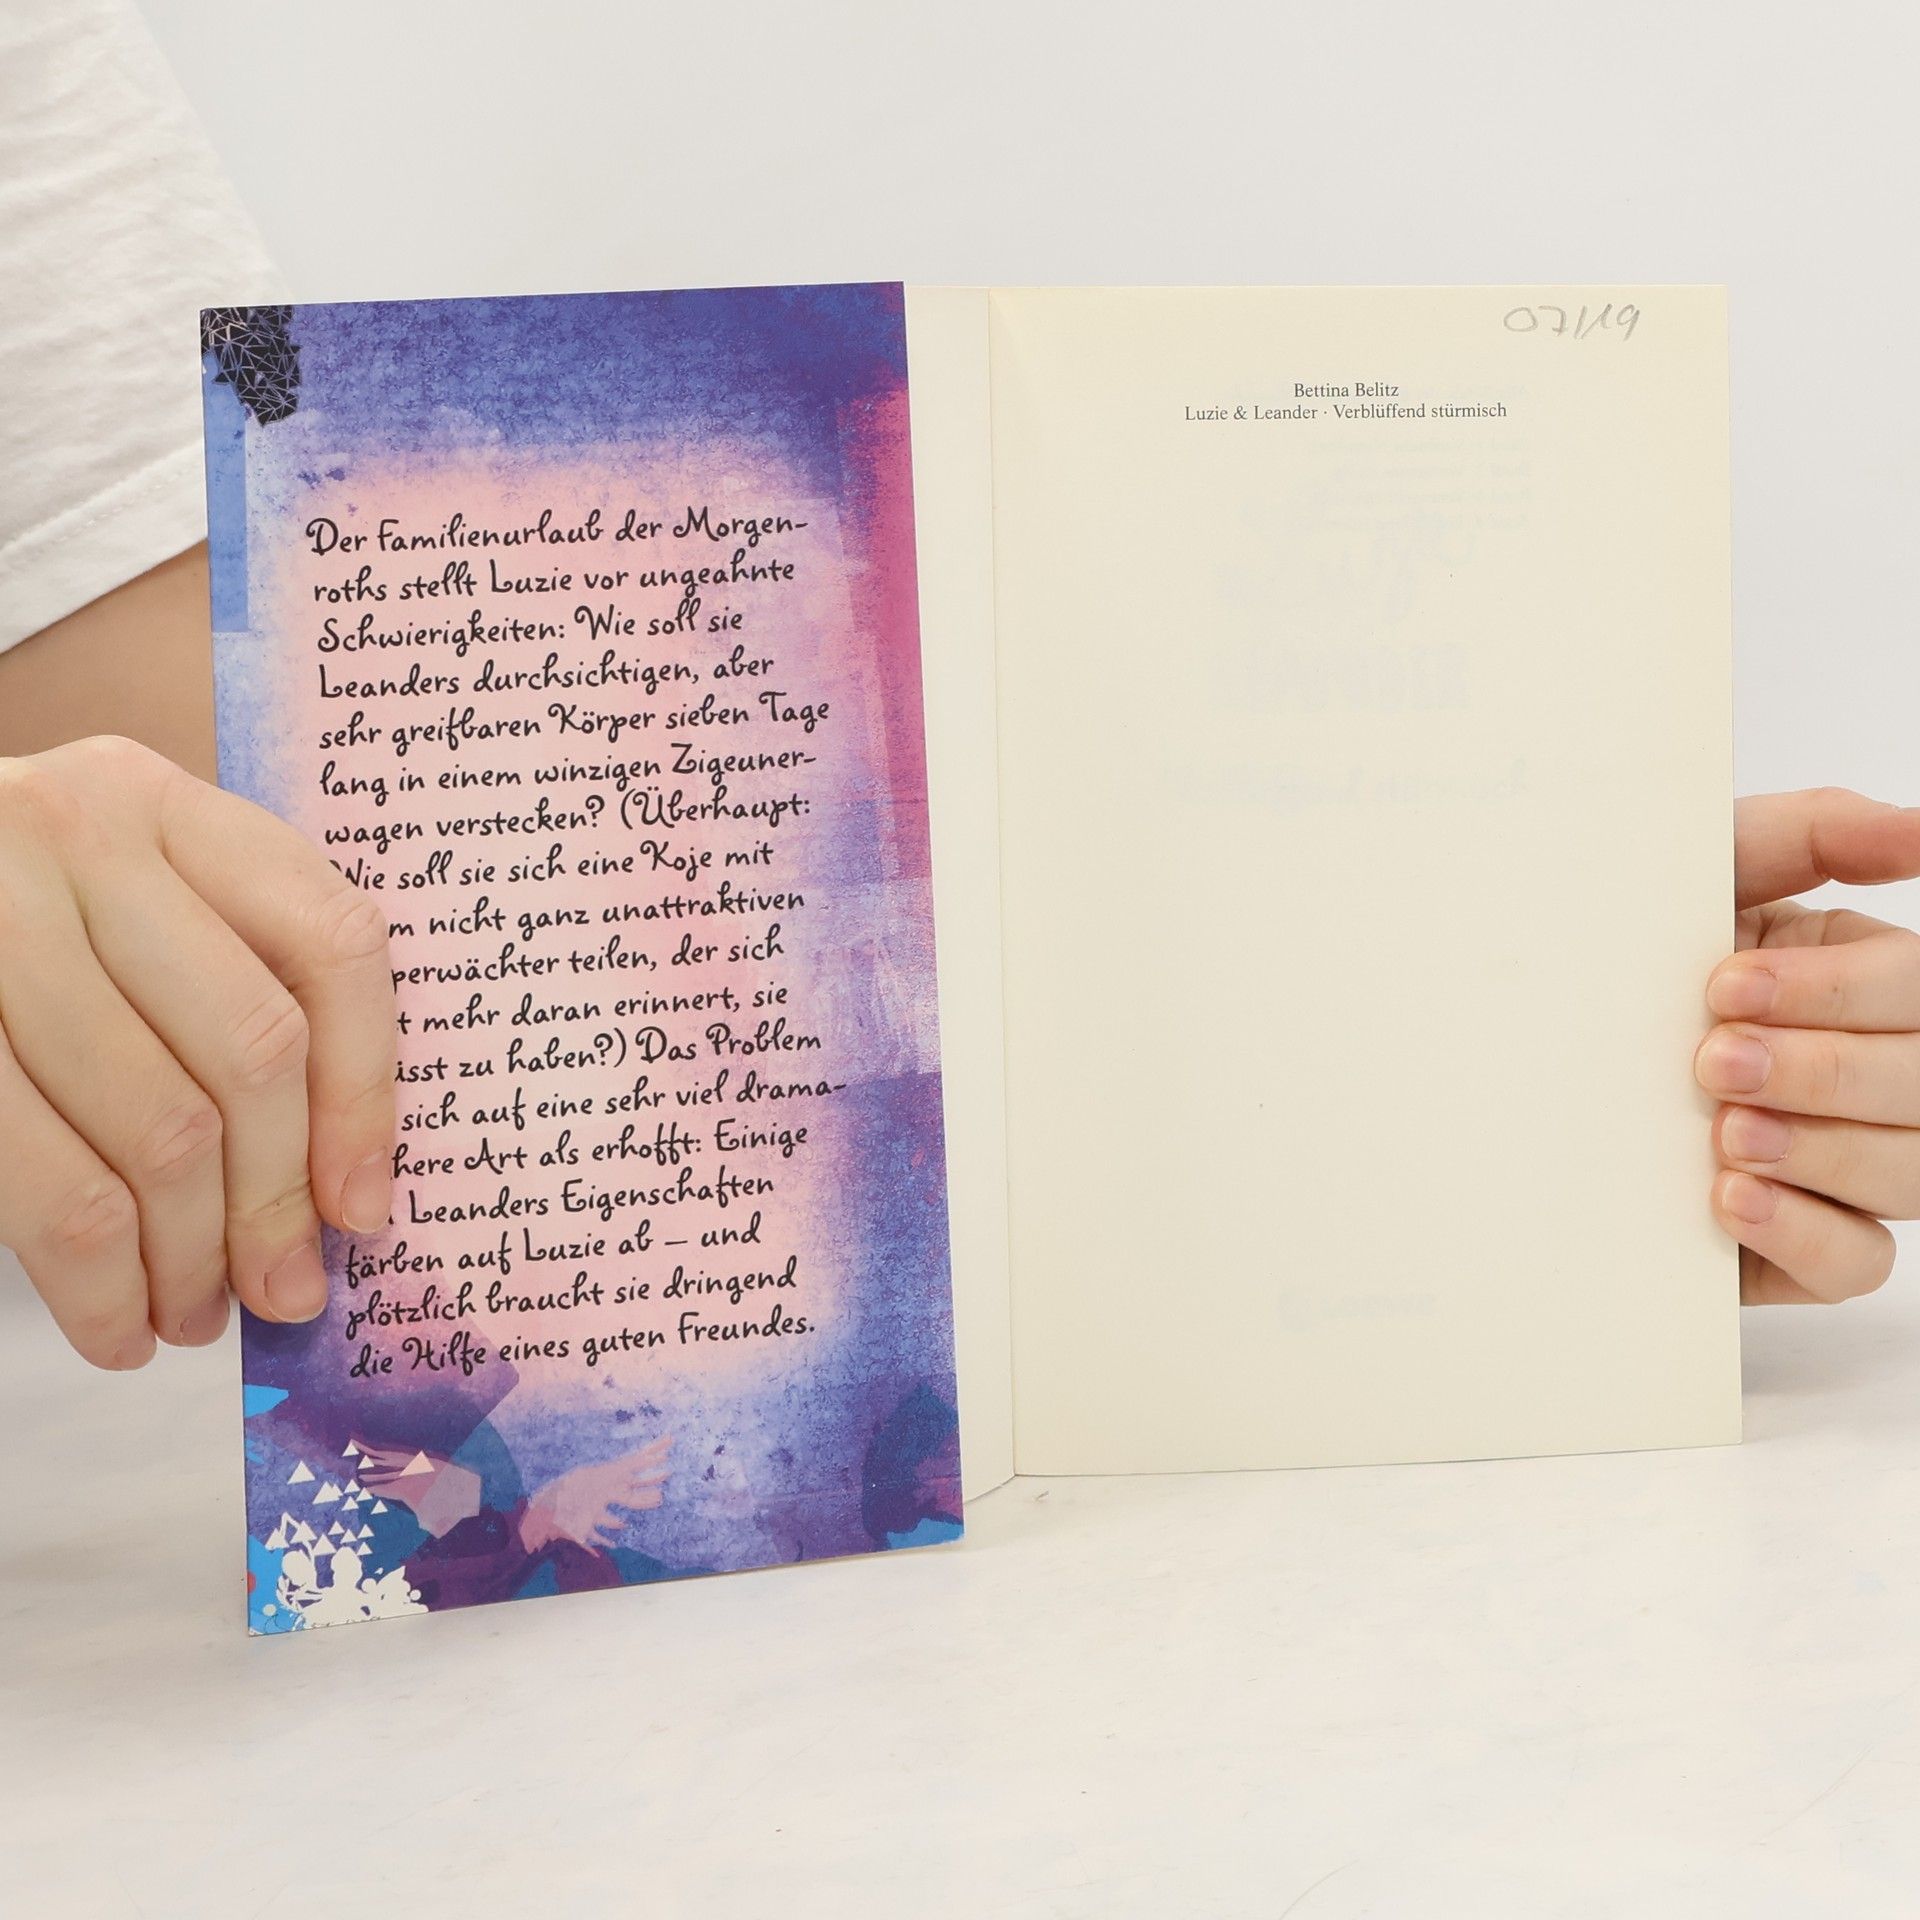 Der Familienurlaub der Morgen-
roths stellt Luzie vor ungeahnte
Schwierigkeiten: Wie soll sie
Leanders durchsichtigen, aber
sehr greifbaren Körper sieben Tage
lang in einem winzigen Zigeuner-
wagen verstecken? (Überhaupt:
Wie soll sie sich eine Koje mit
m nicht ganz unattraktiven
perwächter teilen, der sich
t mehr daran erinnert, sie
isst zu haben?) Das Problem
sich auf eine sehr viel drama-
here Art als erhofft: Einige
Leanders Eigenschaften
färben auf Luzie ab – und
plötzlich braucht sie dringend
die Hilfe eines guten Freundes.
07/19
Bettina Belitz
Luzie & Leander · Verblüffend stürmisch